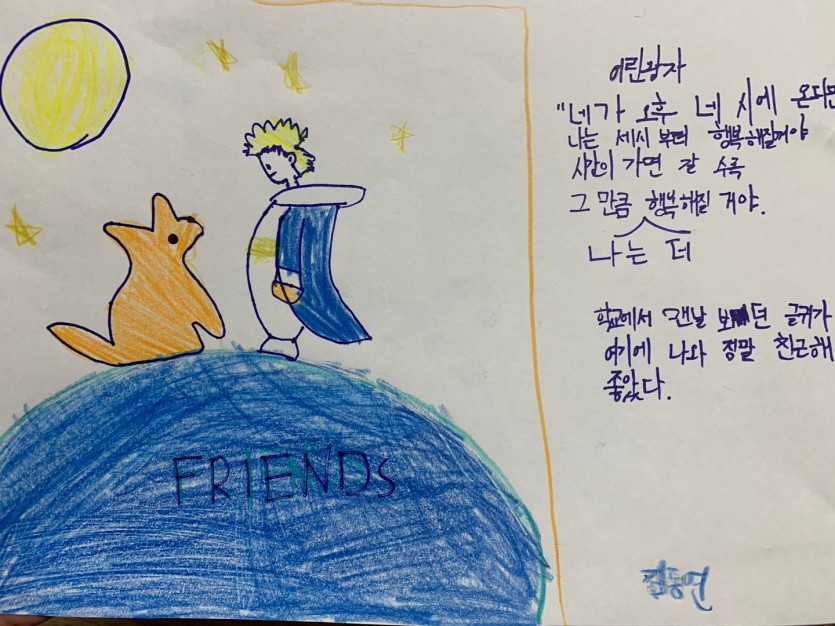 FRIENDS
어린왕자
"네가 오후 네 시에 온다면
나는 세시 부터 행복해질거야
시간이 가면 갈 수록
그 만큼 행복해질 거야.
나는 더
학교에서 맨날 보던 글귀가
여기에 나와 정말 친근해
좋았다.
김동연